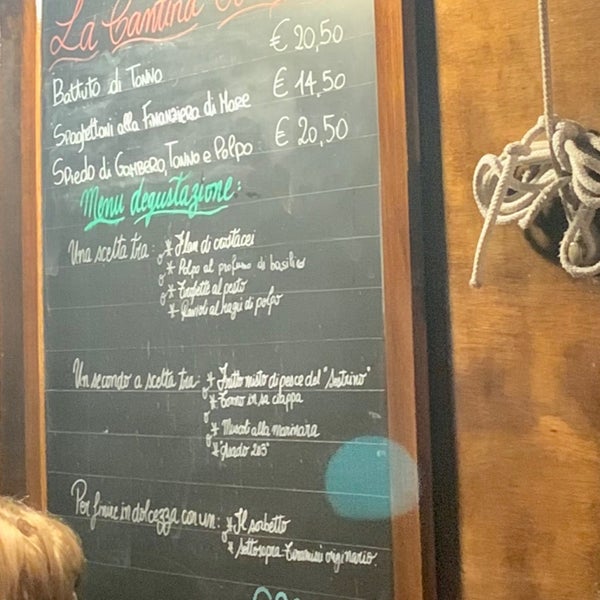 La Cantina
Battuto di Tonno € 20,50
Spaghettoni alla Finanziera di Mare € 14,50
Spiedo di Gambero, Tonno e Polpo € 20,50
Menu degustazione:
Una scelta tra: * Flan di crostacei
o * Polpo al profumo di basilico
o * Trofiette al pesto
o * Ravioli al ragù di polpo
Un secondo a scelta tra: * Fritto misto di pesce del "Sestrino"
o * Tonno in sa ciappa
o * Muscoli alla marinara
o * "Quadro 203"
Per finire in dolcezza con un: * Il sorbetto
* Sottosopra Tiramisù originario